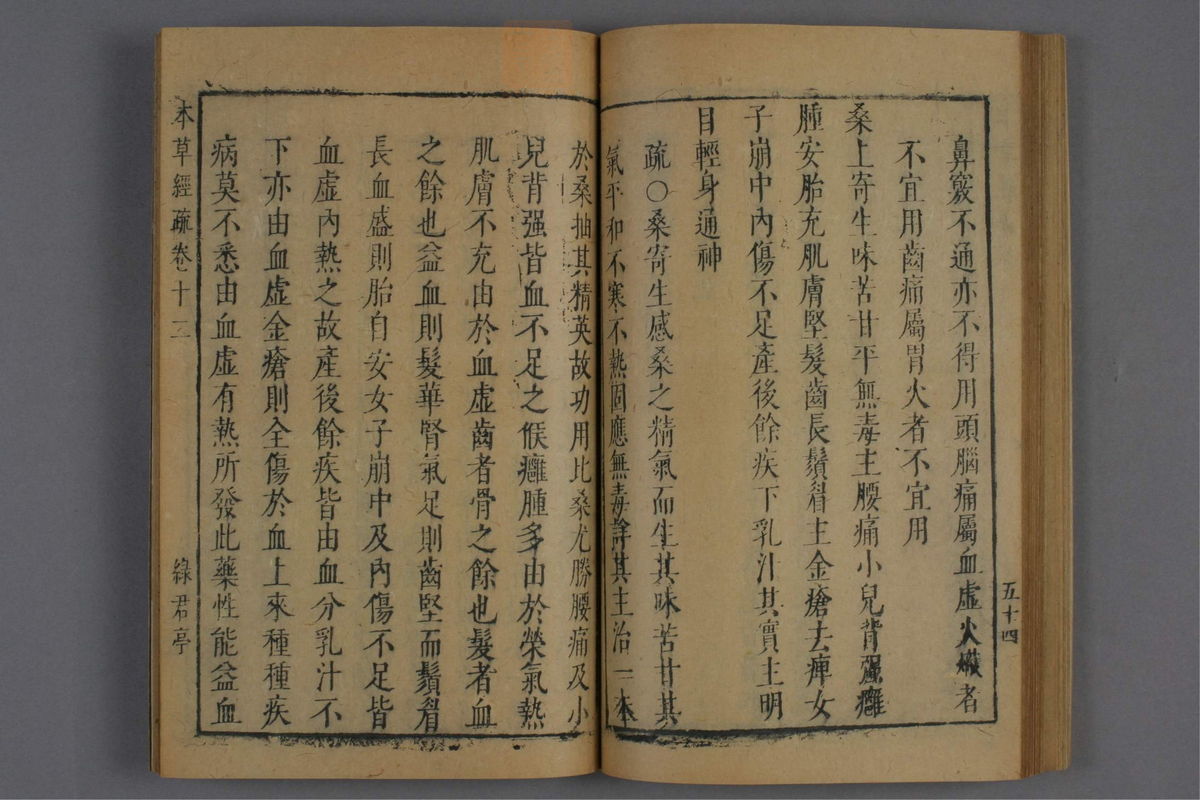 鼻竅不通亦不得用頭腦痛屬血虛火熾者
不宜用齒痛屬胃火者不宜用
桑上寄生味苦甘平無毒主腰痛小兒背强癰
腫安胎充肌膚堅髮齒長鬚眉主金瘡去痺女
子崩中內傷不足產後餘疾下乳汁其實主明
目輕身通神
疏○桑寄生感桑之精氣而生其味苦甘其
氣平和不寒不熱固應無毒詳其主治一本
五十四
於桑抽其精英故功用比桑尤勝腰痛及小
兒背强皆血不足之候癰腫多由於榮氣熱
肌膚不充由於血虛齒者骨之餘也髮者血
之餘也益血則髮華腎氣足則齒堅而鬚眉
長血盛則胎自安女子崩中及內傷不足皆
血虛內熱之故產後餘疾皆由血分乳汁不
下亦由血虛金瘡則全傷於血上來種種疾
病莫不悉由血虛有熱所發此藥性能益血
本草經疏卷十二
綠君亭